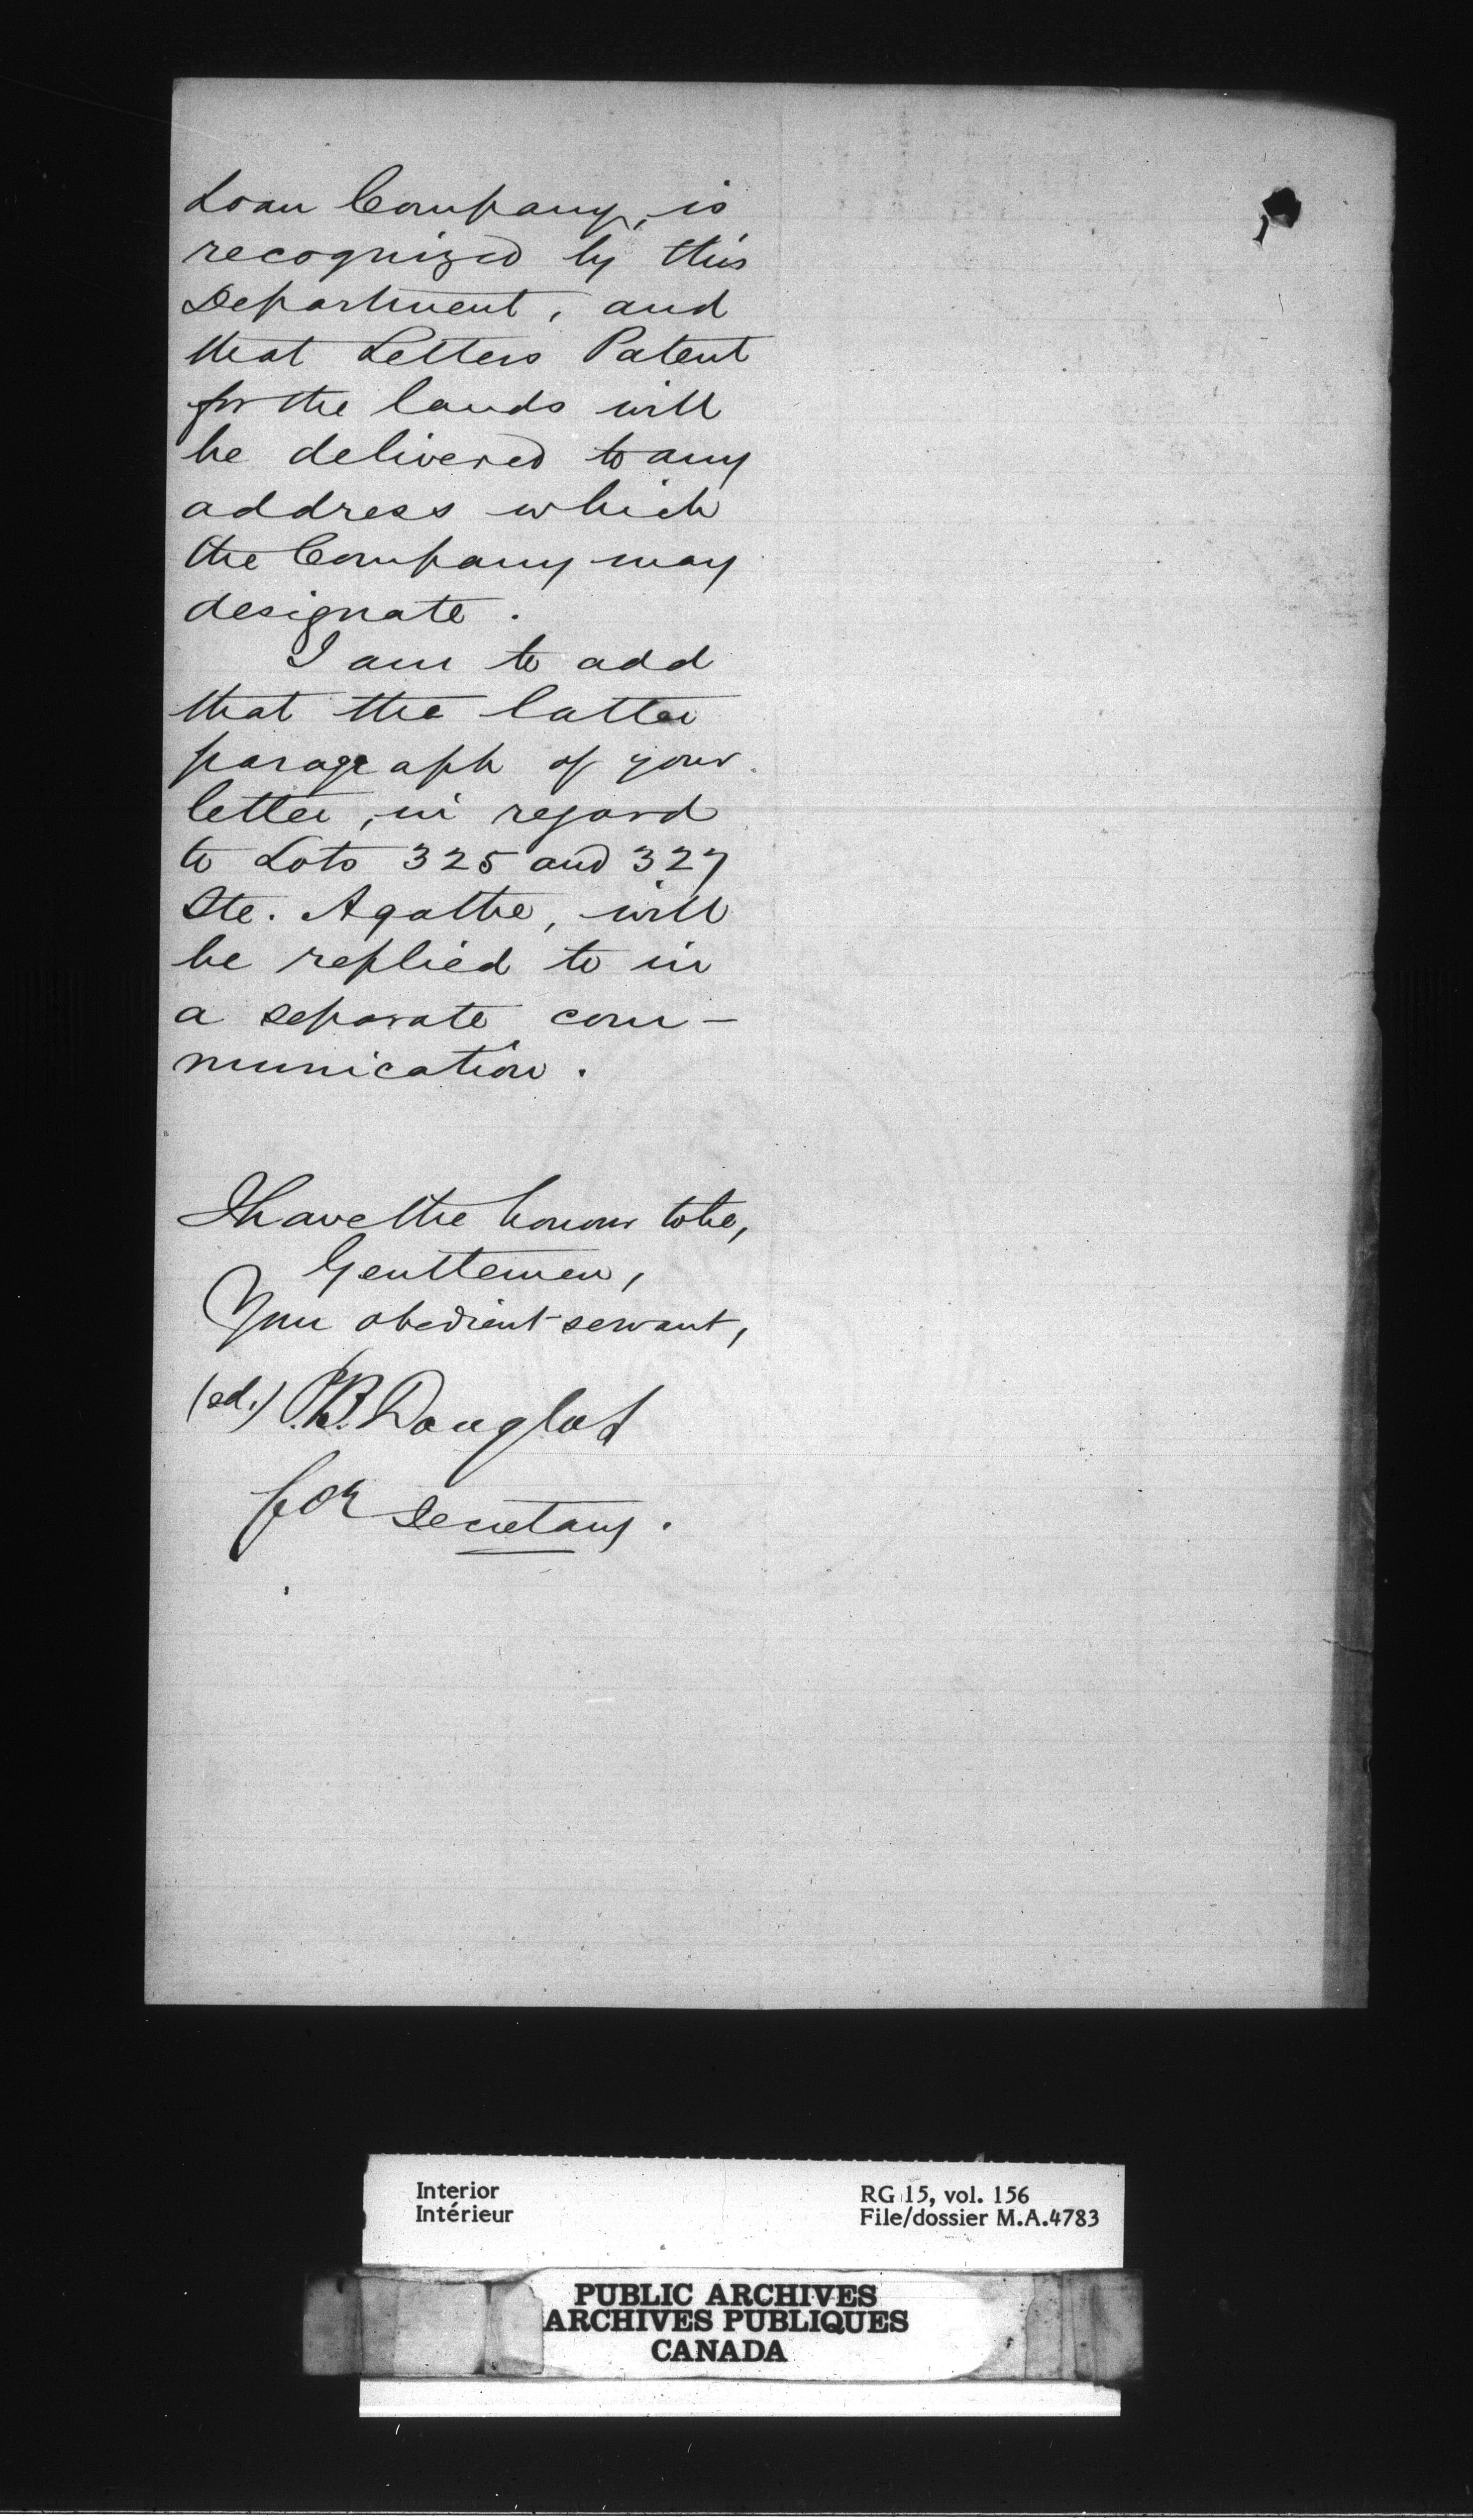 Loan Company, is
recognized by this
Department, and
that Letters Patent
for the lands will
be delivered to any
address which
the Company may
designate.
I am to add
that the latter
paragraph of your
letter, in regard
to Lots 325 and 327
Ste. Agathe, will
be replied to in
a separate com-
munication.
I have the honour to be,
Gentlemen,
Your obedient servant,
(sd.) P.B. Douglas
for Secretary.
Interior
Intérieur
RG 15, vol. 156
File/dossier M.A.4783
PUBLIC ARCHIVES
ARCHIVES PUBLIQUES
CANADA